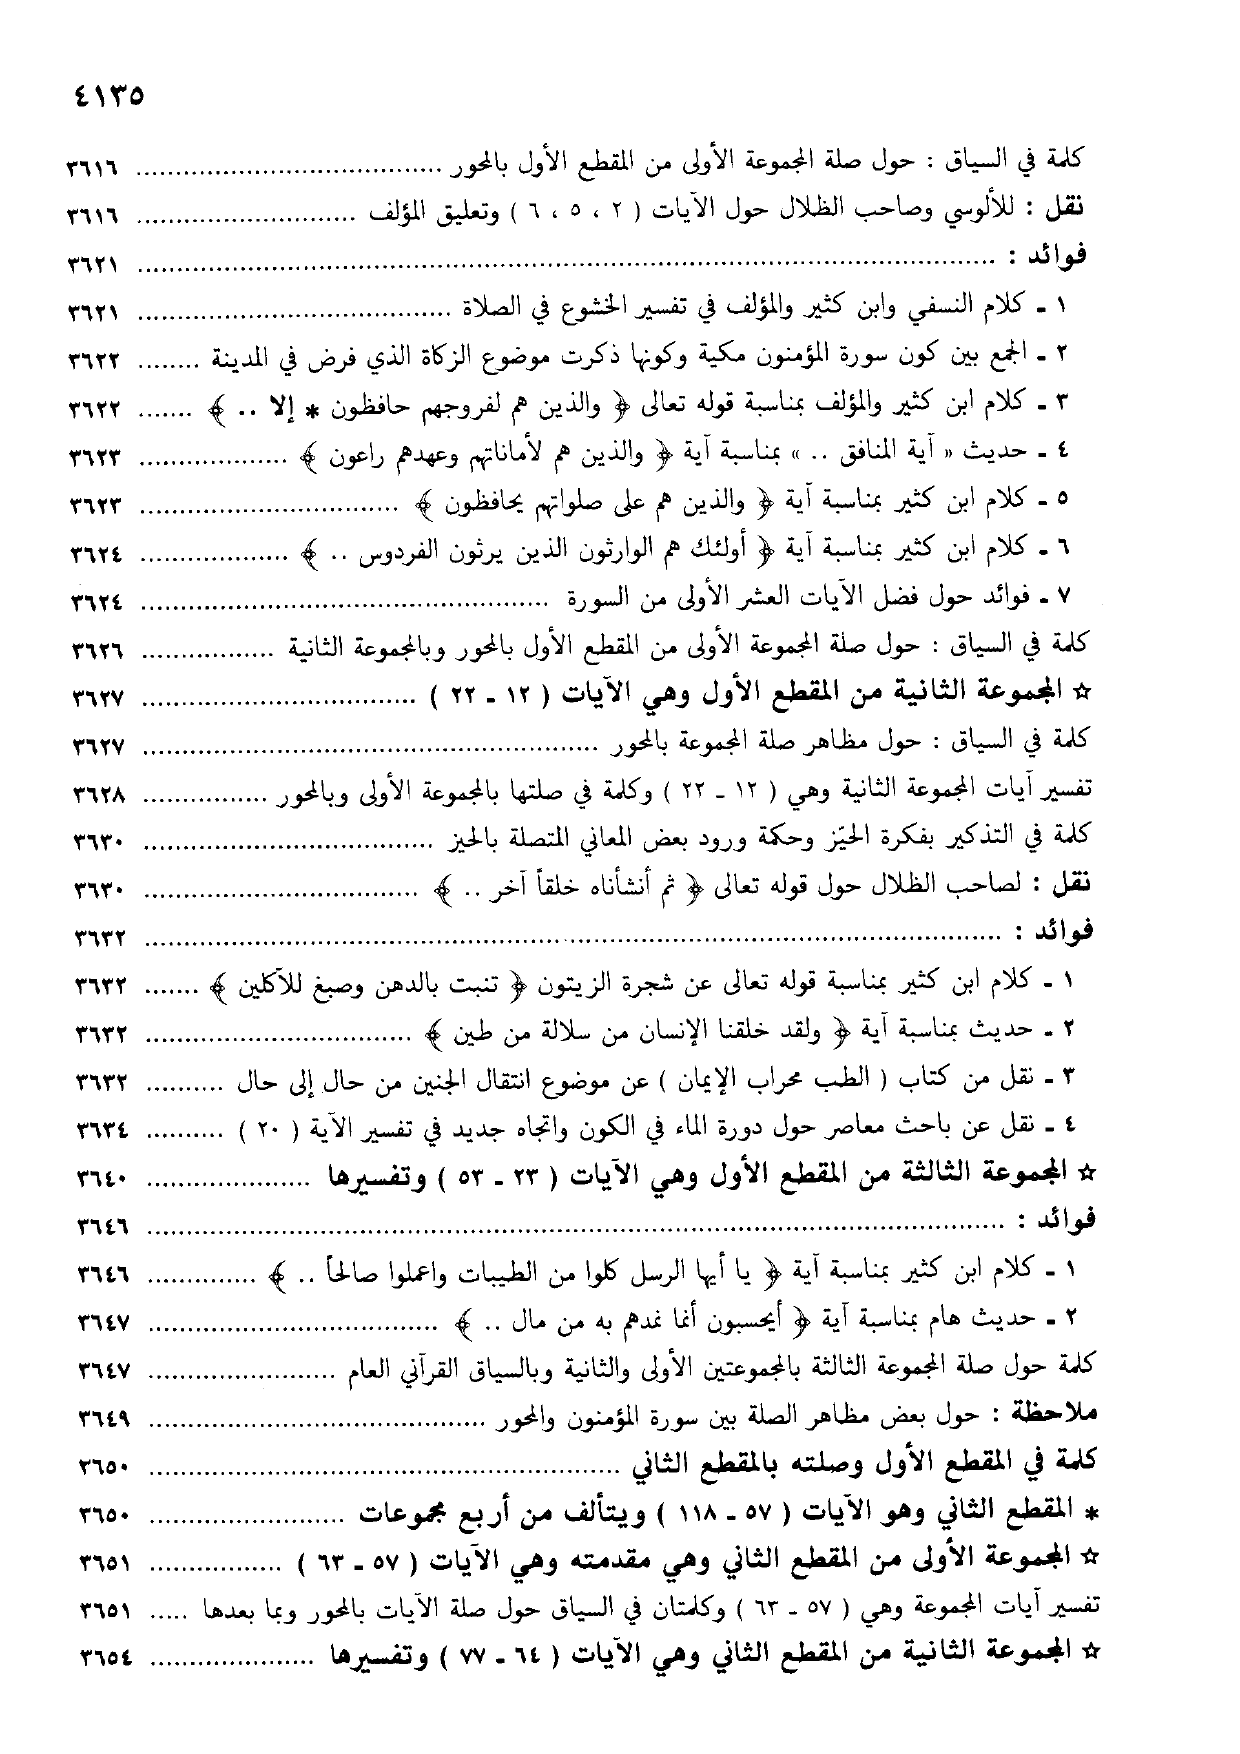 ٤١٣٥
كلمة في السياق : حول صلة المجموعة الأولى من المقطع الأول بالمحور ....................................... ٣٦١٦
نقل : للألوسي وصاحب الظلال حول الآيات ( ٢ ، ٥ ، ٦ ) وتعليق المؤلف ............................ ٣٦١٦
فوائد : ............................................................................................................ ٣٦٢١
١ ـ كلام النسفي وابن كثير والمؤلف في تفسير الخشوع في الصلاة ........................................ ٣٦٢١
٢ ـ الجمع بين كون سورة المؤمنون مكية وكونها ذكرت موضوع الزكاة الذي فرض في المدينة ........ ٣٦٢٢
٣ ـ كلام ابن كثير والمؤلف بمناسبة قوله تعالى ﴿ والذين هم لفروجهم حافظون * إلا .. ﴾ ....... ٣٦٢٢
٤ ـ حديث « آية المنافق .. » بمناسبة آية ﴿ والذين هم لأماناتهم وعهدهم راعون ﴾ ................... ٣٦٢٣
٥ ـ كلام ابن كثير بمناسبة آية ﴿ والذين هم على صلواتهم يحافظون ﴾ ................................. ٣٦٢٣
٦ ـ كلام ابن كثير بمناسبة آية ﴿ أولئك هم الوارثون الذين يرثون الفردوس .. ﴾ ................... ٣٦٢٤
٧ ـ فوائد حول فضل الآيات العشر الأولى من السورة .................................................... ٣٦٢٤
كلمة في السياق : حول صلة المجموعة الأولى من المقطع الأول بالمحور وبالمجموعة الثانية ................. ٣٦٢٦
☆ المجموعة الثانية من المقطع الأول وهي الآيات ( ١٢ ـ ٢٢ ) ................................... ٣٦٢٧
كلمة في السياق : حول مظاهر صلة المجموعة بالمحور .......................................................... ٣٦٢٧
تفسير آيات المجموعة الثانية وهي ( ١٢ ـ ٢٢ ) وكلمة في صلتها بالمجموعة الأولى وبالمحور ................ ٣٦٢٨
كلمة في التذكير بفكرة الحيّز وحكمة ورود بعض المعاني المتصلة بالحيز ..................................... ٣٦٣٠
نقل : لصاحب الظلال حول قوله تعالى ﴿ ثم أنشأناه خلقاً آخر .. ﴾ ................................... ٣٦٣٠
فوائد : ............................................................................................................ ٣٦٣٢
١ ـ كلام ابن كثير بمناسبة قوله تعالى عن شجرة الزيتون ﴿ تنبت بالدهن وصبغ للآكلين ﴾ ....... ٣٦٣٢
٢ ـ حديث بمناسبة آية ﴿ ولقد خلقنا الإنسان من سلالة من طين ﴾ .................................. ٣٦٣٢
٣ ـ نقل من كتاب ( الطب محراب الإيمان ) عن موضوع انتقال الجنين من حال إلى حال .......... ٣٦٣٢
٤ ـ نقل عن باحث معاصر حول دورة الماء في الكون واتجاه جديد في تفسير الآية ( ٢٠ ) .......... ٣٦٣٤
☆ المجموعة الثالثة من المقطع الأول وهي الآيات ( ٢٣ ـ ٥٣ ) وتفسيرها ..................... ٣٦٤٠
فوائد : ............................................................................................................ ٣٦٤٦
١ ـ كلام ابن كثير بمناسبة آية ﴿ يا أيها الرسل كلوا من الطيبات واعملوا صالحاً .. ﴾ .............. ٣٦٤٦
٢ ـ حديث هام بمناسبة آية ﴿ أيحسبون أنما نمدهم به من مال .. ﴾ ..................................... ٣٦٤٧
كلمة حول صلة المجموعة الثالثة بالمجموعتين الأولى والثانية وبالسياق القرآني العام ........................ ٣٦٤٧
ملاحظة : حول بعض مظاهر الصلة بين سورة المؤمنون والمحور ........................................... ٣٦٤٩
كلمة في المقطع الأول وصلته بالمقطع الثاني ............................................................ ٣٦٥٠
* المقطع الثاني وهو الآيات ( ٥٧ ـ ١١٨ ) ويتألف من أربع مجموعات ......................... ٣٦٥٠
☆ المجموعة الأولى من المقطع الثاني وهي مقدمته وهي الآيات ( ٥٧ ـ ٦٣ ) ................. ٣٦٥١
تفسير آيات المجموعة وهي ( ٥٧ ـ ٦٣ ) وكلمتان في السياق حول صلة الآيات بالمحور وبما بعدها ..... ٣٦٥١
☆ المجموعة الثانية من المقطع الثاني وهي الآيات ( ٦٤ ـ ٧٧ ) وتفسيرها ..................... ٣٦٥٤